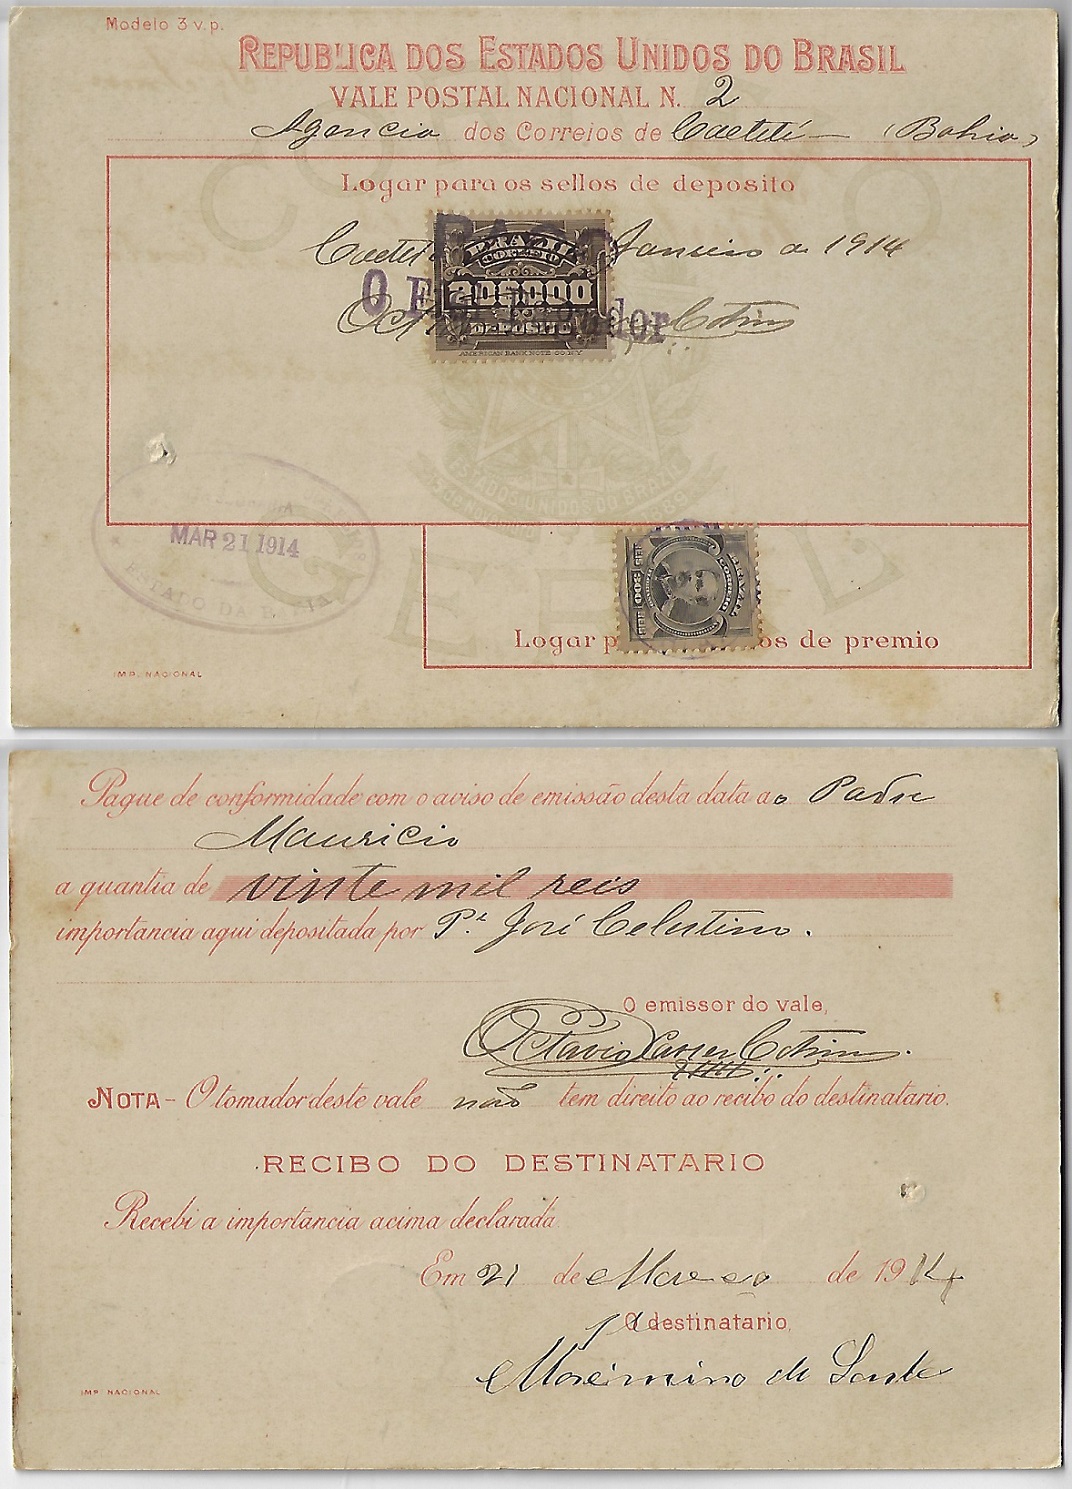 Modelo 3 v.p.
REPUBLICA DOS ESTADOS UNIDOS DO BRASIL
VALE POSTAL NACIONAL N. 2
Agencia dos Correios de Caeteté — (Bahia)
Logar para os sellos de deposito
Janeiro de 1914
BRAZIL
CORREIO
20$000
DEPOSITO
AMERICAN BANK NOTE CO. N.Y.
ESTADOS UNIDOS DO BRAZIL
MAR 21 1914
ESTADO DA BAHIA
BRAZIL
CORREIO
REIS 300 REIS
Logar p os de premio
IMP. NACIONAL
GERAL
Pague de conformidade com o aviso de emissão desta data ao Padre
Mauricio
a quantia de vinte mil reis
importancia aqui depositada por P.e José Celestino.
O emissor do vale,
Octavio Cotrim
NOTA - O tomador deste vale não tem direito ao recibo do destinatario.
RECIBO DO DESTINATARIO
Recebi a importancia acima declarada
Em 21 de Março de 1914
O destinatario,
de
IMP. NACIONAL